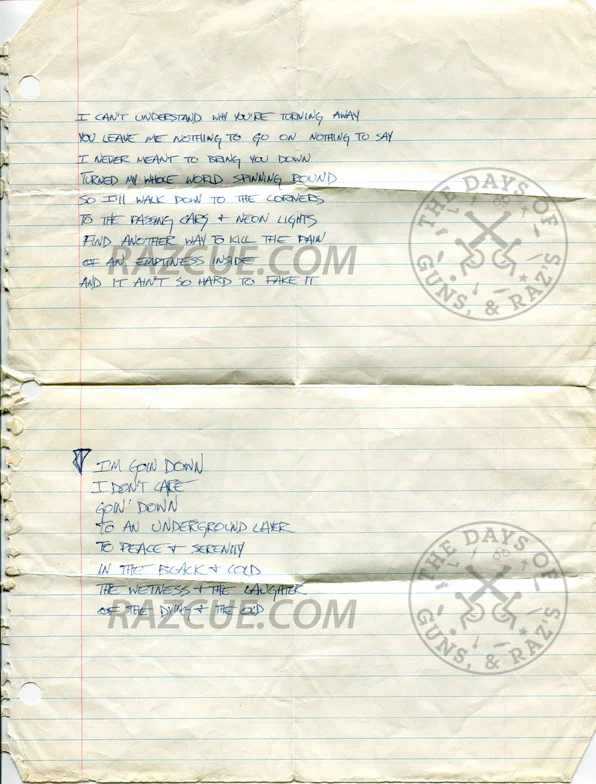 I CAN'T UNDERSTAND WHY YOU'RE TURNING AWAY
YOU LEAVE ME NOTHING TO GO ON NOTHING TO SAY
I NEVER MEANT TO BRING YOU DOWN
TURNED MY WHOLE WORLD SPINNING ROUND
SO I'LL WALK DOWN TO THE CORNERS
TO THE PASSING CARS & NEON LIGHTS
FIND ANOTHER WAY TO KILL THE PAIN
OF AN EMPTINESS INSIDE
AND IT AIN'T SO HARD TO FAKE IT
RAZCUE.COM
THE DAYS OF
GUNS, & RAZ'S
I'M GOIN DOWN
I DON'T CARE
GOIN' DOWN
TO AN UNDERGROUND LAYER
TO PEACE & SERENITY
IN THE BLACK & COLD
THE WETNESS & THE LAUGHTER
OF THE DYING & THE OLD
RAZCUE.COM
THE DAYS OF
GUNS, & RAZ'S